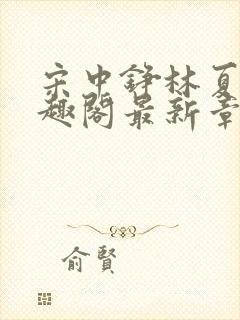 宋中錚林夏
趣閣最新章
俞賢